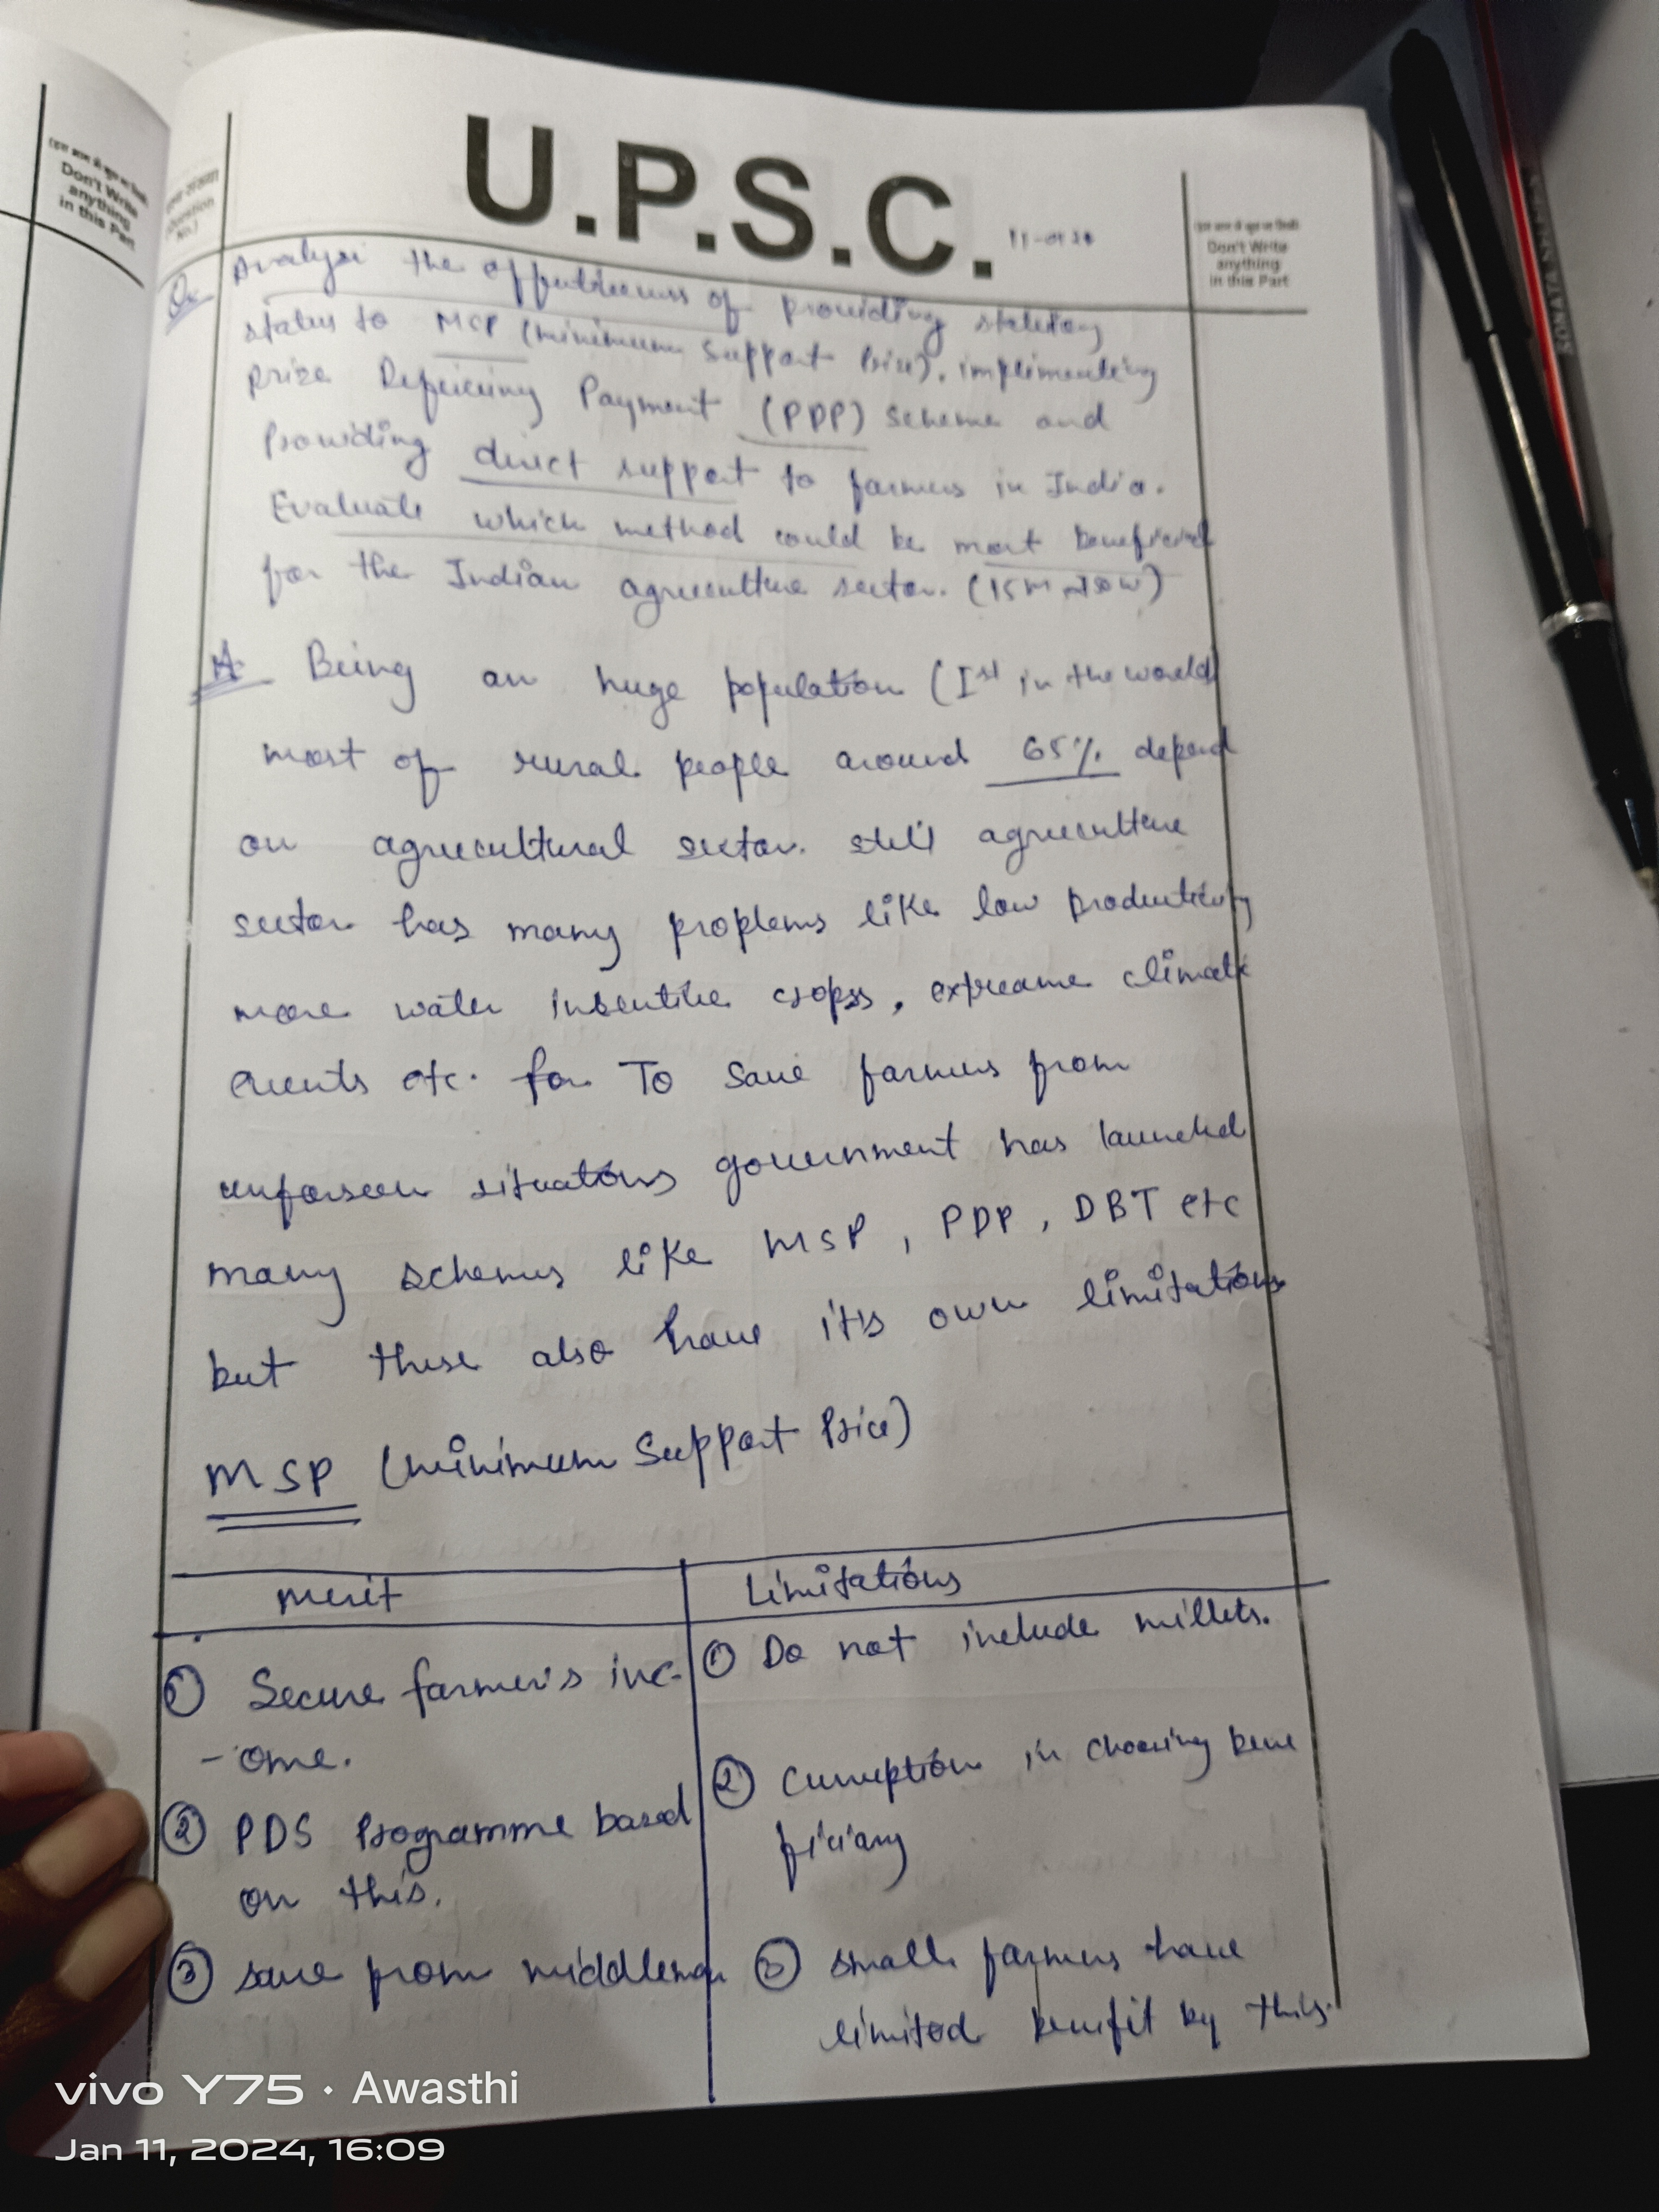 U.P.S.C.
Don't Write
anything
in this Part
(Question
No.)
Don't Write
anything
in this Part
Q. Analysi the of providing
status to MSP (minimum Support Price), implimenting
prize Payment (PDP) scheme and
Providing direct support to farmers in India.
Evaluate which method could be most beneficial
for the Indian agruculture sector. (15M
A. Being an huge population (Ist in the world)
most of rural people around 65% depend
on agrucultural sector. still agruculture
sector has many proplems like low productivity
more water crops, expreame climate
events etc. for To save farmers from
unforseen situations government has launched
many schemes like MSP, PDP, DBT etc
but these also have it's own limitations
MSP (minimum Support Price)
merit Limitations
① Secure farmer's inc-
-ome.
② PDS Programme based
on this.
③ save from middleman
① Do not include millets.
② Curruption in choosing bene
ficiary
③ small farmers have
limited benifit by this.
SONATA
vivo Y75 · Awasthi
Jan 11, 2024, 16:09